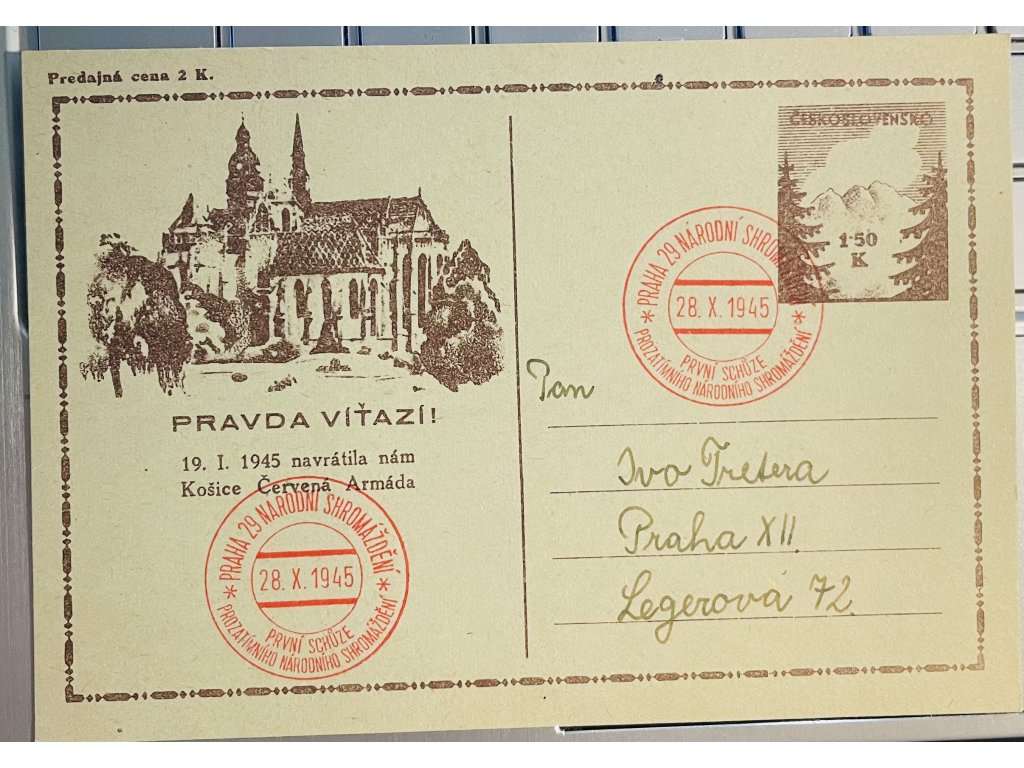 Predajná cena 2 K.
ČESKOSLOVENSKO
1·50
K
* PRAHA 29 NÁRODNÍ SHROMÁŽDĚNÍ *
28. X. 1945
PRVNÍ SCHŮZE
PROZATÍMNÍHO NÁRODNÍHO SHROMÁŽDĚNÍ
PRAVDA VÍŤAZÍ!
19. I. 1945 navrátila nám
Košice Červená Armáda
* PRAHA 29 NÁRODNÍ SHROMÁŽDĚNÍ *
28. X. 1945
PRVNÍ SCHŮZE
PROZATÍMNÍHO NÁRODNÍHO SHROMÁŽDĚNÍ
Pan
Ivo Tretera
Praha XII.
Legerová 72.